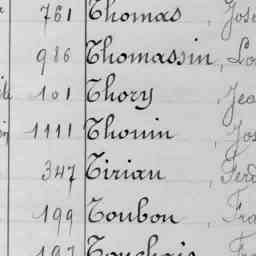 761 Thomas, Jose
986 Thomassin, Lo
101 Thory, Jea
1111 Thouin, Jos
347 Tirian, Ferd
199 Toubon, Fra
197 Touchais, Fra